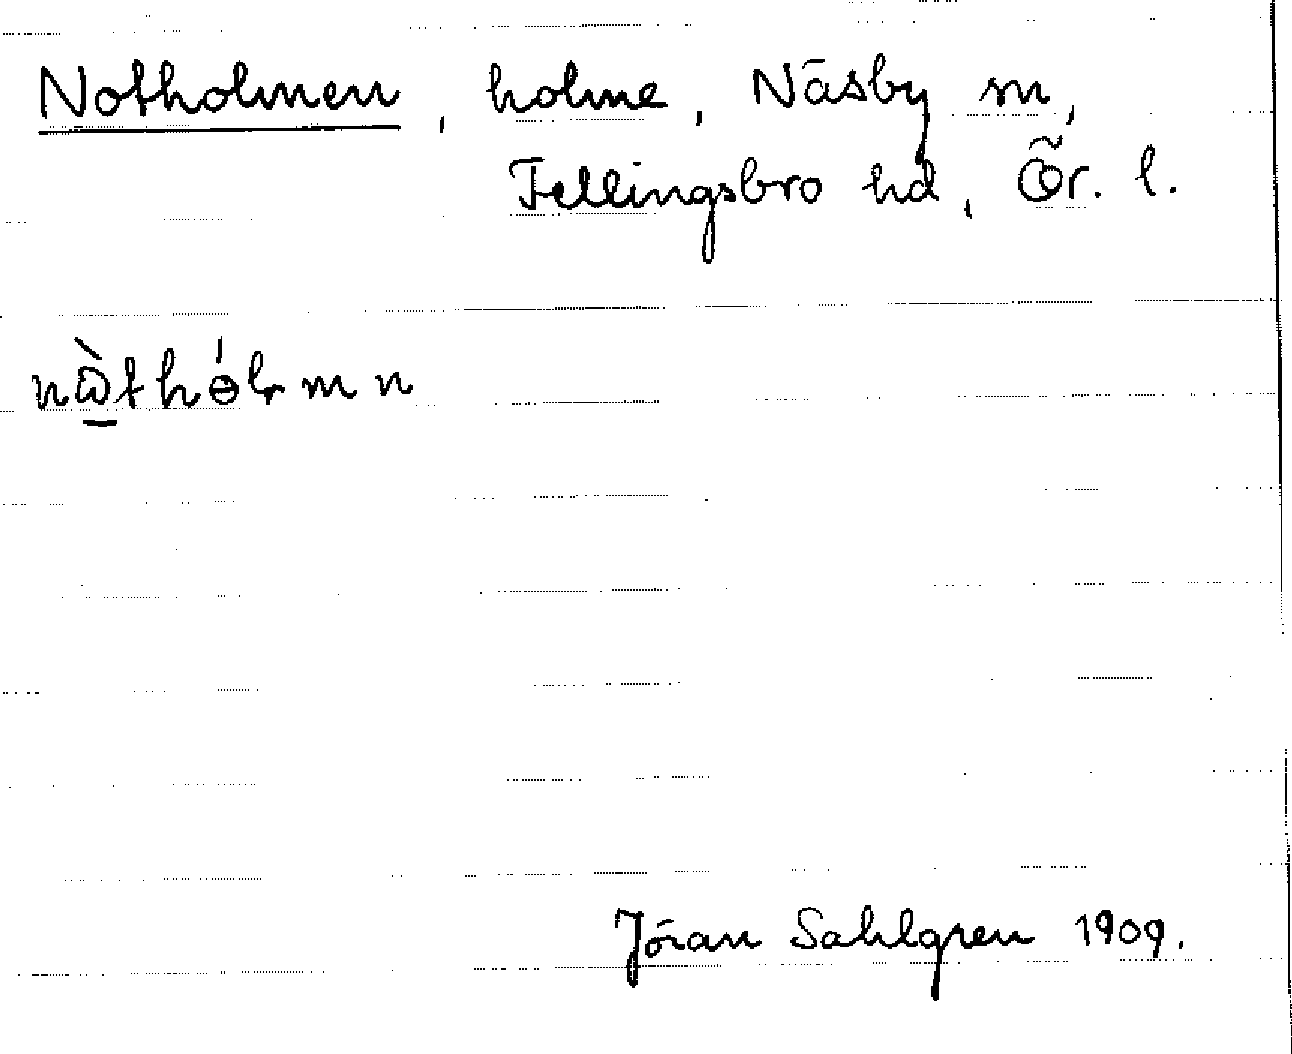 Notholmen, holme, Näsby sn,
Fellingsbro hd, Ör. l.
nὼ̱thɵ́lmn
Jöran Sahlgren 1909.